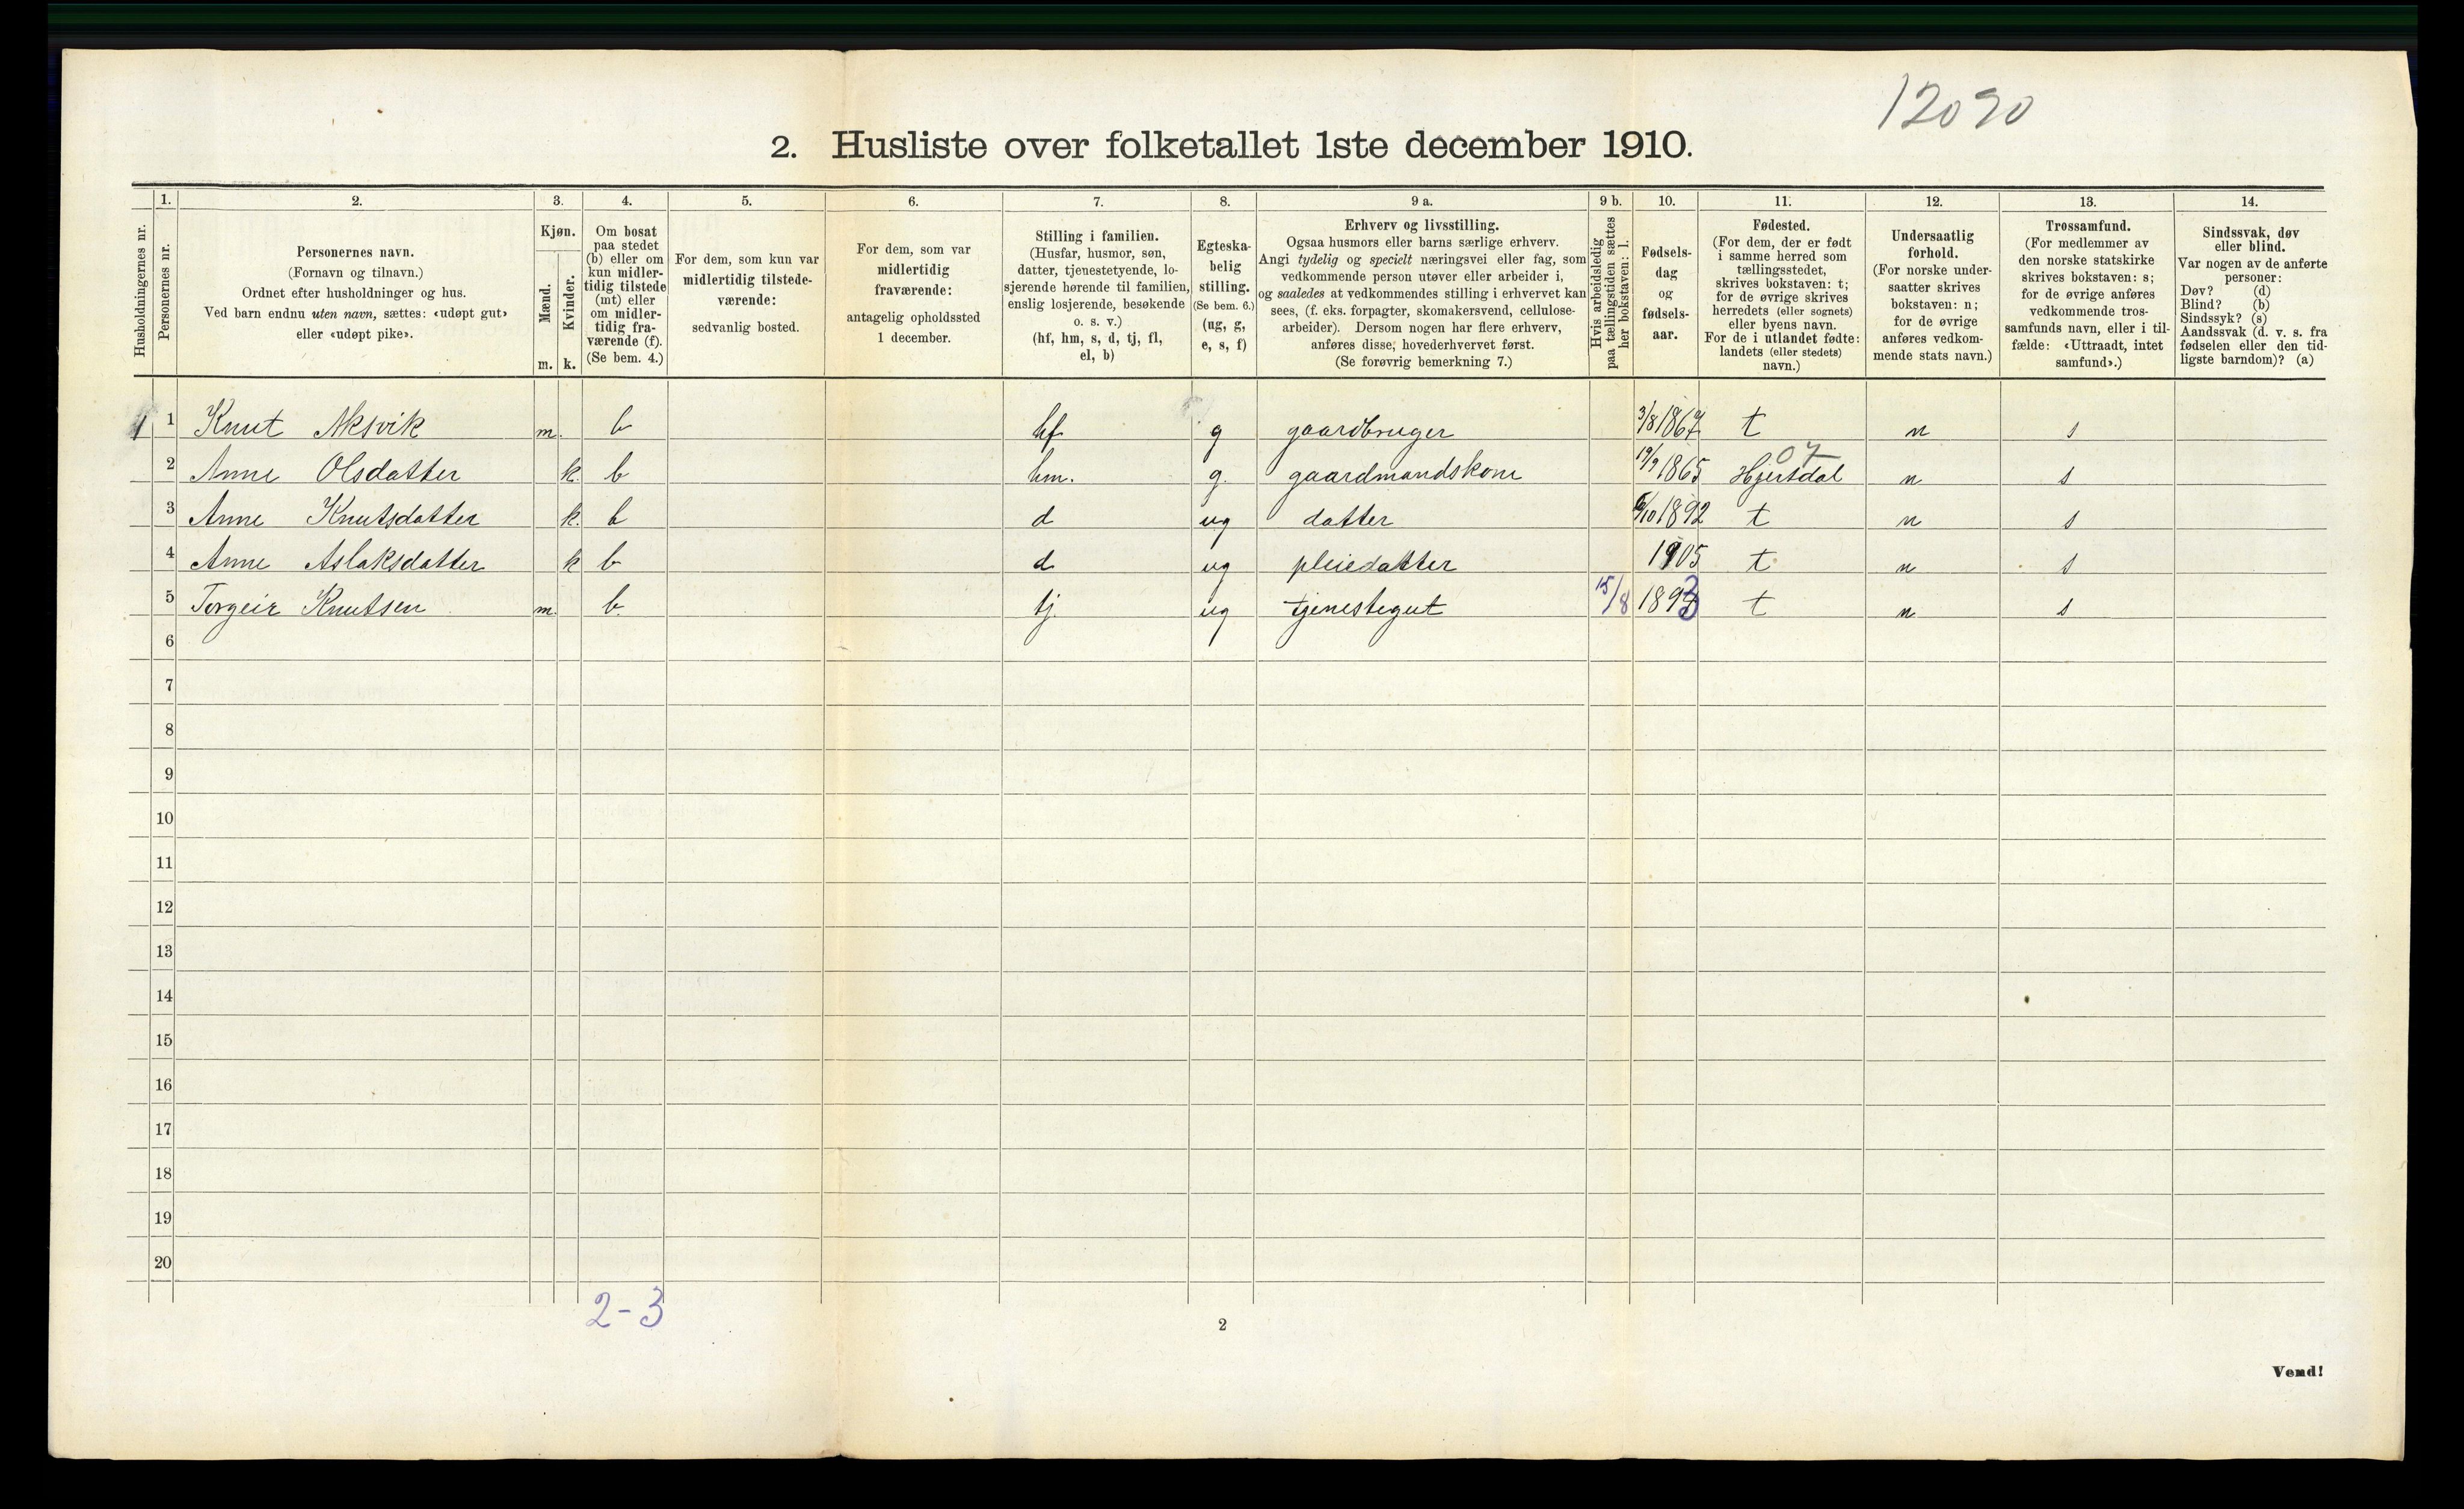 12020
2. Husliste over folketallet 1ste december 1910.
1. 2. 3. 4. 5. 6. 7. 8. 9 a. 9 b. 10. 11. 12. 13. 14.
Husholdningernes nr.
Personernes nr.
Personernes navn.
(Fornavn og tilnavn.)
Ordnet efter husholdninger og hus.
Ved barn endnu uten navn, sættes: «udøpt gut»
eller «udøpt pike».
Kjøn.
Mænd.
Kvinder.
m. k.
Om bosat
paa stedet
(b) eller om
kun midler-
tidig tilstede
(mt) eller
om midler-
tidig fra-
værende (f).
(Se bem. 4.)
For dem, som kun var
midlertidig tilstede-
værende:
sedvanlig bosted.
For dem, som var
midlertidig
fraværende:
antagelig opholdssted
1 december.
Stilling i familien.
(Husfar, husmor, søn,
datter, tjenestetyende, lo-
sjerende hørende til familien,
enslig losjerende, besøkende
o. s. v.)
(hf, hm, s, d, tj, fl,
el, b)
Egteska-
belig
stilling.
(Se bem. 6.)
(ug, g,
e, s, f)
Erhverv og livsstilling.
Ogsaa husmors eller barns særlige erhverv.
Angi tydelig og specielt næringsvei eller fag, som
vedkommende person utøver eller arbeider i,
og saaledes at vedkommendes stilling i erhvervet kan
sees, (f. eks. forpagter, skomakersvend, cellulose-
arbeider). Dersom nogen har flere erhverv,
anføres disse, hovederhvervet først.
(Se forøvrig bemerkning 7.)
Hvis arbeidsledig
paa tællingstiden sættes
her bokstaven: l.
Fødsels-
dag
og
fødsels-
aar.
Fødested.
(For dem, der er født
i samme herred som
tællingsstedet,
skrives bokstaven: t;
for de øvrige skrives
herredets (eller sognets)
eller byens navn.
For de i utlandet fødte:
landets (eller stedets)
navn.)
Undersaatlig
forhold.
(For norske under-
saatter skrives
bokstaven: n;
for de øvrige
anføres vedkom-
mende stats navn.)
Trossamfund.
(For medlemmer av
den norske statskirke
skrives bokstaven: s;
for de øvrige anføres
vedkommende tros-
samfunds navn, eller i til-
fælde: «Uttraadt, intet
samfund».)
Sindssvak, døv
eller blind.
Var nogen av de anførte
personer:
Døv? (d)
Blind? (b)
Sindssyk? (s)
Aandssvak (d. v. s. fra
fødselen eller den tid-
ligste barndom)? (a)
1 1 Knut Aksvik m. b hf g gaardbruger 3/8 1867 t n s
07
2 Anne Olsdatter k. b hm. g. gaardmandskone 19/9 1865 Hjertdal n s
3 Anne Knutsdatter k. b d ug datter 6/10 1892 t n s
4 Anne Aslaksdatter k b d ug pleiedatter 1905 t n s
5 Torgeir Knutsen m. b. tj. ug tjenestegut 15/8 1893 t n s
6
7
8
9
10
11
12
13
14
15
16
17
18
19
20
2-3
2
Vend!